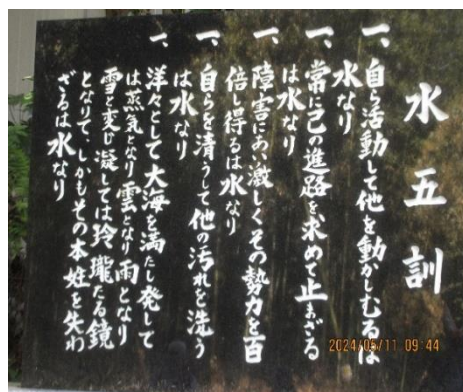 水五訓
一、自ら活動して他を動かしむるは
水なり
一、常に己の進路を求めて止まざる
は水なり
一、障害にあい激しくその勢力を百
倍し得るは水なり
一、自らを清うして他の汚れを洗う
は水なり
一、洋々として大海を満たし発して
は蒸気となり雲となり雨となり
雪と変じ凝しては玲瓏たる鏡
となりて、しかもその本姓を失わ
ざるは水なり
2024/05/11 09:44